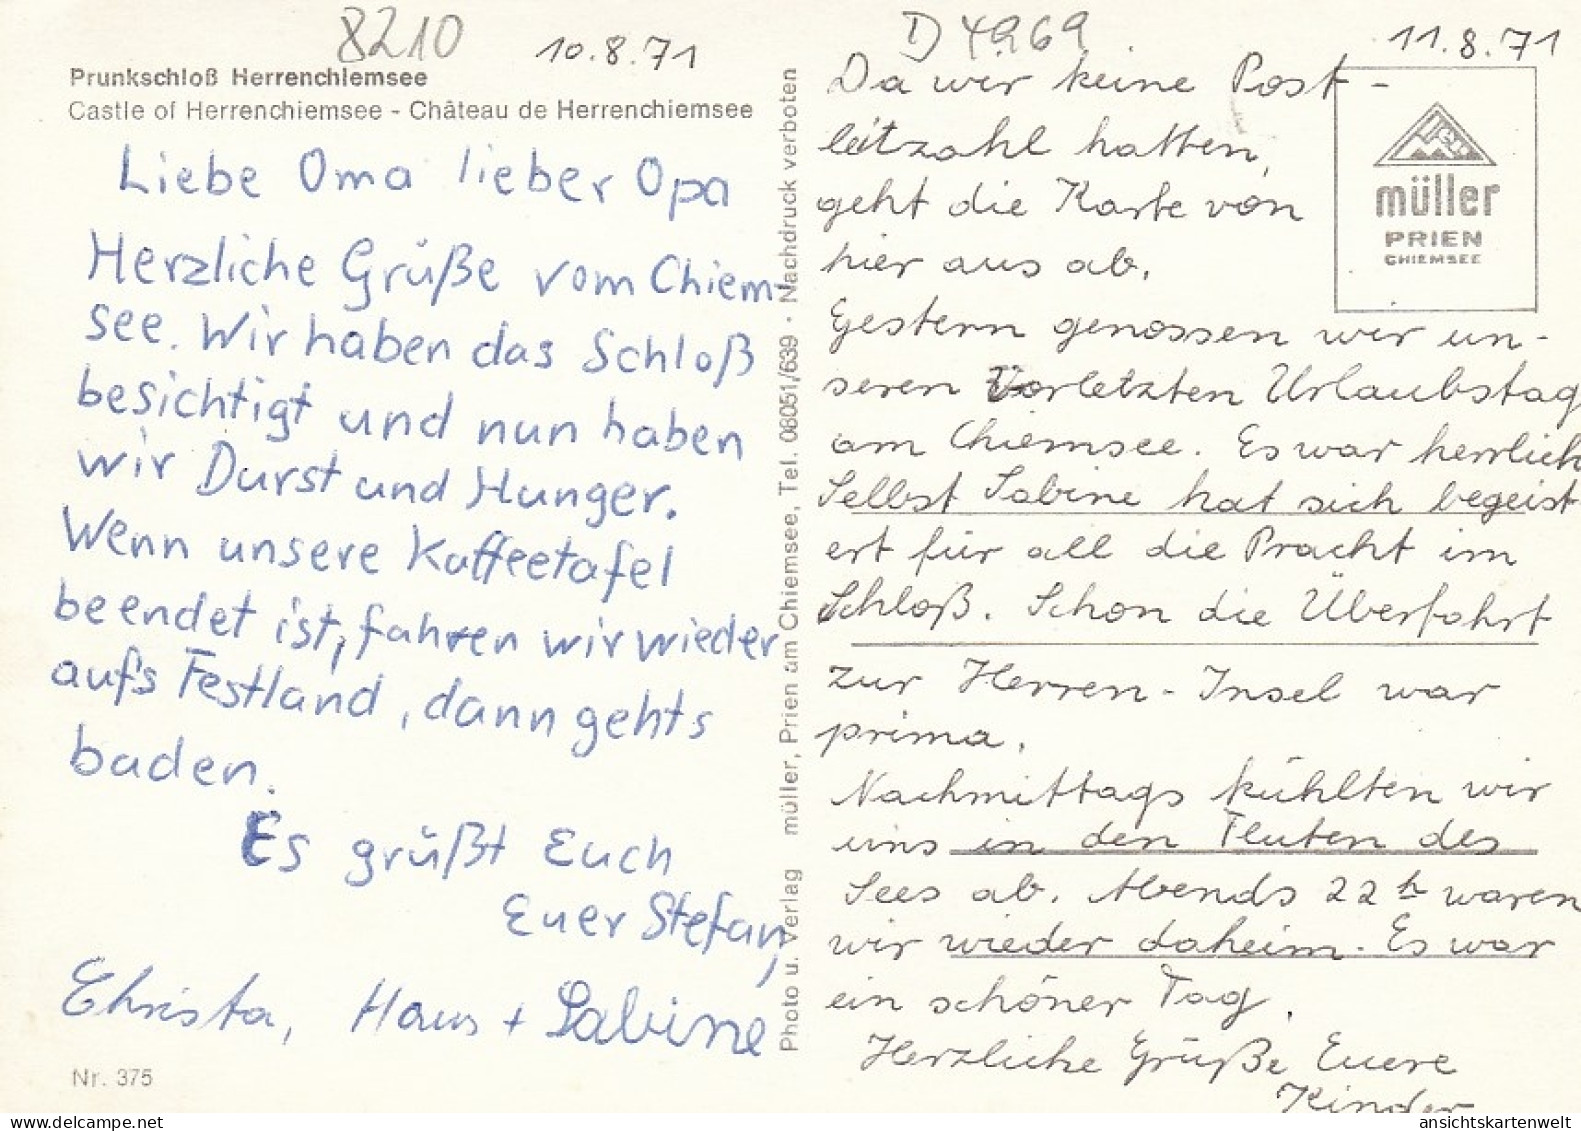 8210
10.8.71
Prunkschloß Herrenchiemsee
Castle of Herrenchiemsee - Château de Herrenchiemsee
Liebe Oma lieber Opa
Herzliche Grüße vom Chiem-
see. Wir haben das Schloß
besichtigt und nun haben
wir Durst und Hunger.
Wenn unsere Kaffeetafel
beendet ist, fahren wir wieder
aufs Festland, dann gehts
baden.
Es grüßt Euch
Euer Stefan,
Christa, Hans + Sabine
Nr. 375
Photo u. Verlag müller, Prien am Chiemsee, Tel. 08051/639 · Nachdruck verboten
D 4969
11.8.71
Da wir keine Post-
leitzahl hatten,
geht die Karte von
hier aus ab.
Gestern genossen wir un-
seren Vorletzten Urlaubstag
am Chiemsee. Es war herrlich
Selbst Sabine hat sich begeist
ert für all die Pracht im
Schloß. Schon die Überfahrt
zur Herren-Insel war
prima.
Nachmittags kühlten wir
uns in den Fluten des
Sees ab. Abends 22 h waren
wir wieder daheim. Es war
ein schöner Tag.
Herzliche Grüße Euere
Kinder
müller
PRIEN
CHIEMSEE
www.delcampe.net
ansichtskartenwelt